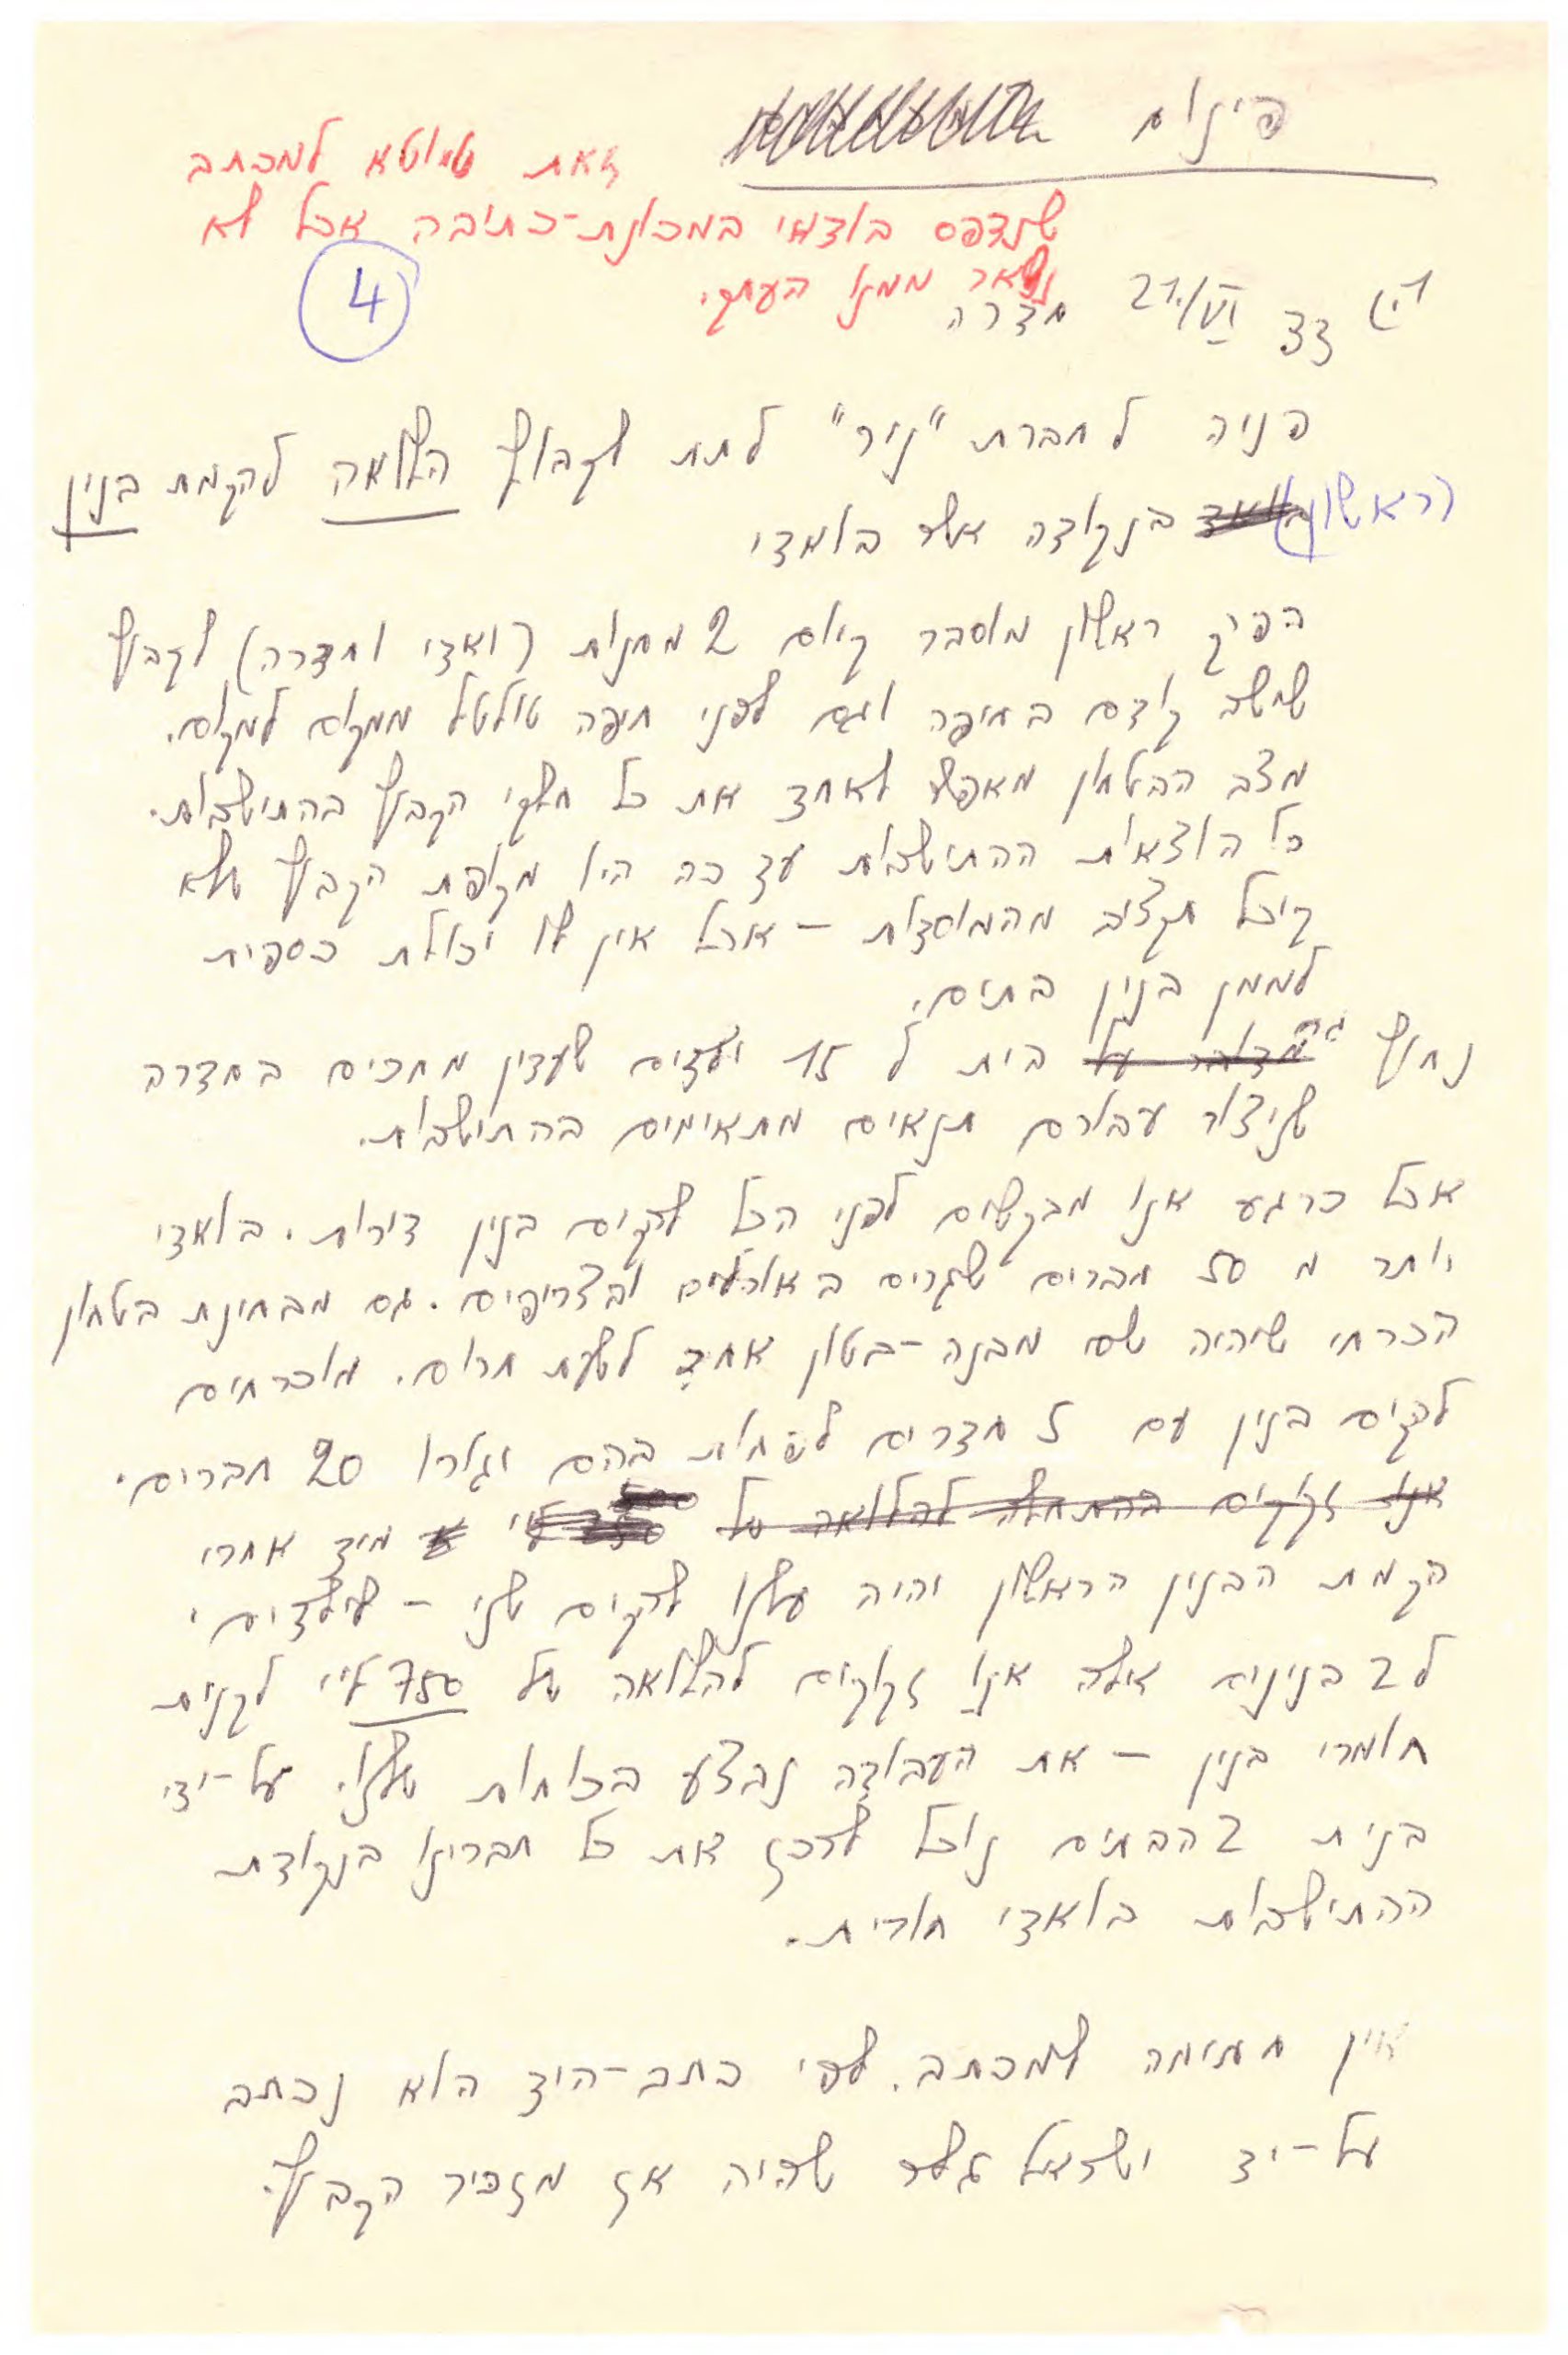 פינוס
זאת טיוטא למכתב
שנדפס בודאי במכונת-כתיבה אבל לא
נשאר ממנו העתק.
4
33 21./VI חדרה
פניה לחברת "ניר" לתת לקבוץ הלוואה להקמת בנין
(ראשון) בנקודה אשר בואדי
הפיק ראשון מוסבר קיום 2 מחנות (ואדי וחדרה) לקבוץ
שישב קודם בחיפה וגם לפני חיפה טולטל ממקום למקום.
מצב הבטחון מאפשר לאחד את כל חלקי הקבוץ בהתישבות.
כל הוצאות ההתישבות עד כה היו מקופת הקבוץ שלא
קיבל תקציב מהמוסדות – אבל אין לו יכולת כספית
לממן בנין בתים.
נחוץ גם מדובר על בית ל 15 ילדים שעדין מחכים בחדרה
שניצור עבורם תנאים מתאימים בהתישבות.
אבל כרגע אנו מבקשים לפני הכל להקים בנין דירות. בואדי
יותר מ 50 חברים שגרים באוהלים ובצריפים. גם מבחינת בטחון
הכרחי שיהיה שם מבנה-בטון אחד לשעת חרום. מוכרחים
להקים בנין עם 5 חדרים לפחות בהם יגורו 20 חברים.
אנו זקוקים בהתחלה להלוואה של מיד אחרי
הקמת הבנין הראשון יהיה עלינו להקים שני – לילדים.
ל 2 בנינים אלה אנו זקוקים להלוואה של 750 לא"י לקנית
חומרי בנין – את העבודה נבצע בכוחות שלנו. על-ידי
בנית 2 הבתים נוכל לרכז את כל חברינו בנקודת
ההתישבות בואדי חורית.
אין חתימה למכתב. לפי כתב-היד הוא נכתב
על-יד ישראל גלר שהיה אז מזכיר הקבוץ.